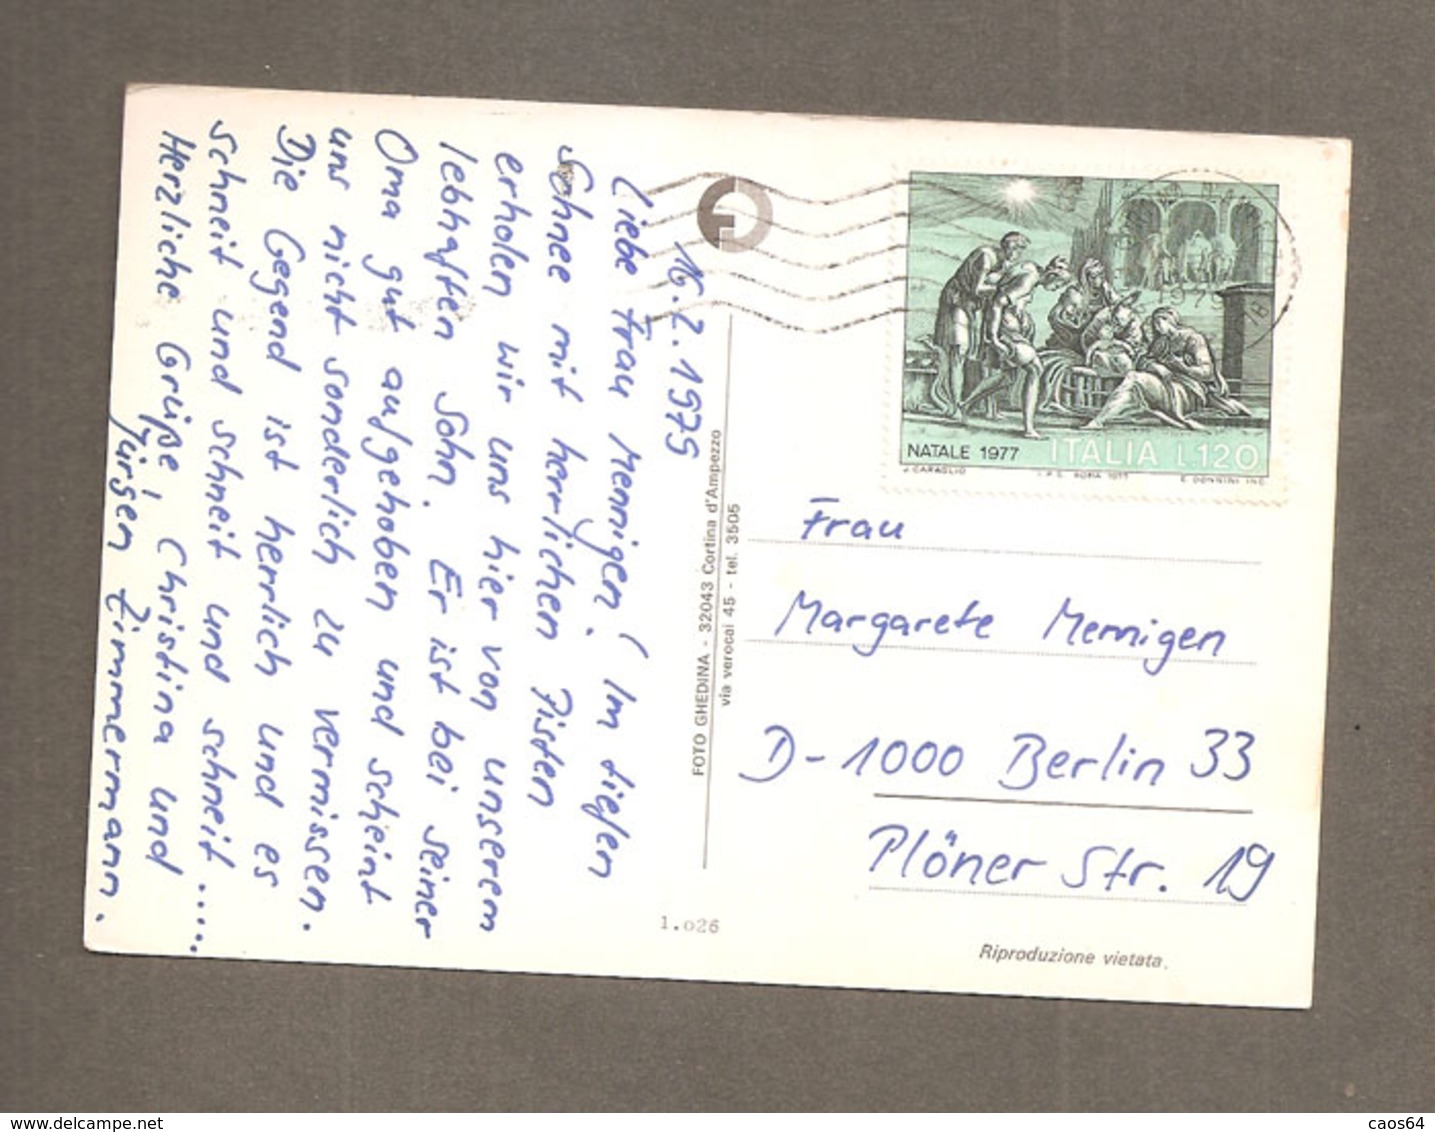 16.2.1979
Liebe Frau Mennigen! Im tiefen
Schnee mit herrlichen Pisten
erholen wir uns hier von unserem
lebhaften Sohn. Er ist bei seiner
Oma gut aufgehoben und scheint
uns nicht sonderlich zu vermissen.
Die Gegend ist herrlich und es
schneit und schneit und schneit.....
Herzliche Grüße, Christina und
Jürgen Zimmermann.
FOTO GHEDINA - 32043 Cortina d'Ampezzo
via verocai 45 - tel. 3505
1.026
1979
18
NATALE 1977 ITALIA L.120
J. CARAGLIO I.P.S. ROMA 1977 E. DONNINI INC.
Frau
Margarete Mennigen
D-1000 Berlin 33
Plöner Str. 19
Riproduzione vietata.
delcampe.net
caos64